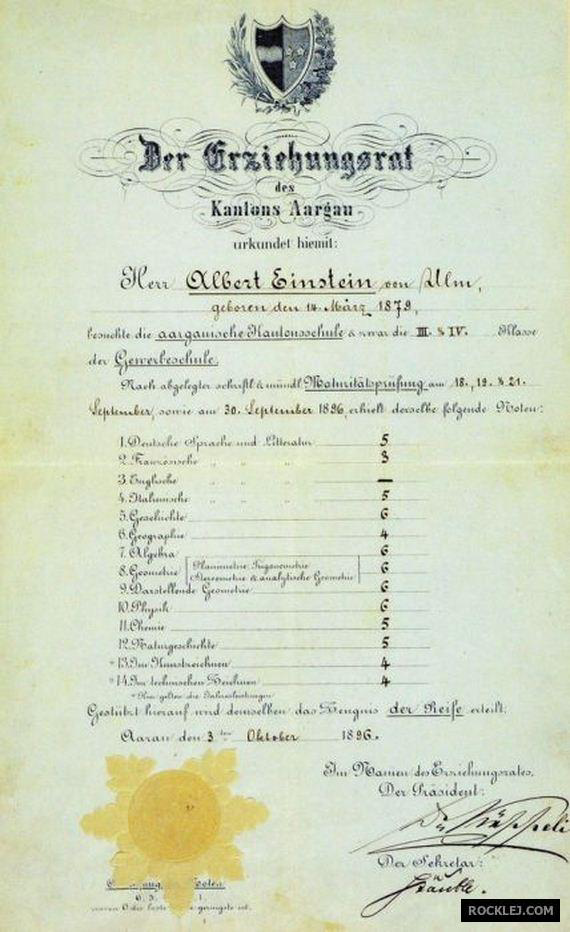 Der Erziehungsrat
des
Kantons Aargau
urkundet hiemit:
Herr Albert Einstein von Ulm,
geboren den 14. März 1879,
besuchte die aargauische Kantonsschule & zwar die III. & IV. Klasse
der Gewerbeschule.
Nach abgelegter schriftl. & mündl. Maturitätsprüfung am 18., 19. & 21.
September, sowie am 30. September 1896, erhielt derselbe folgende Noten:
1. Deutsche Sprache und Litteratur 5
2. Französische „ „ „ 3
3. Englische „ „ „ —
4. Italienische „ „ „ 5
5. Geschichte 6
6. Geographie 4
7. Algebra 6
8. Geometrie Planimetrie, Trigonometrie 6
Stereometrie & analytische Geometrie
9. Darstellende Geometrie 6
10. Physik 6
11. Chemie 5
12. Naturgeschichte 5
* 13. Im Kunstzeichnen 4
* 14. Im technischen Zeichnen 4
* Hier gelten die Jahresleistungen.
Gestützt hierauf wird demselben das Zeugnis der Reife erteilt.
Aarau den 3ten Oktober 1896.
Im Namen des Erziehungsrates,
Der Präsident:
Der Sekretär:
Stäuble.
ROCKLEJ.COM